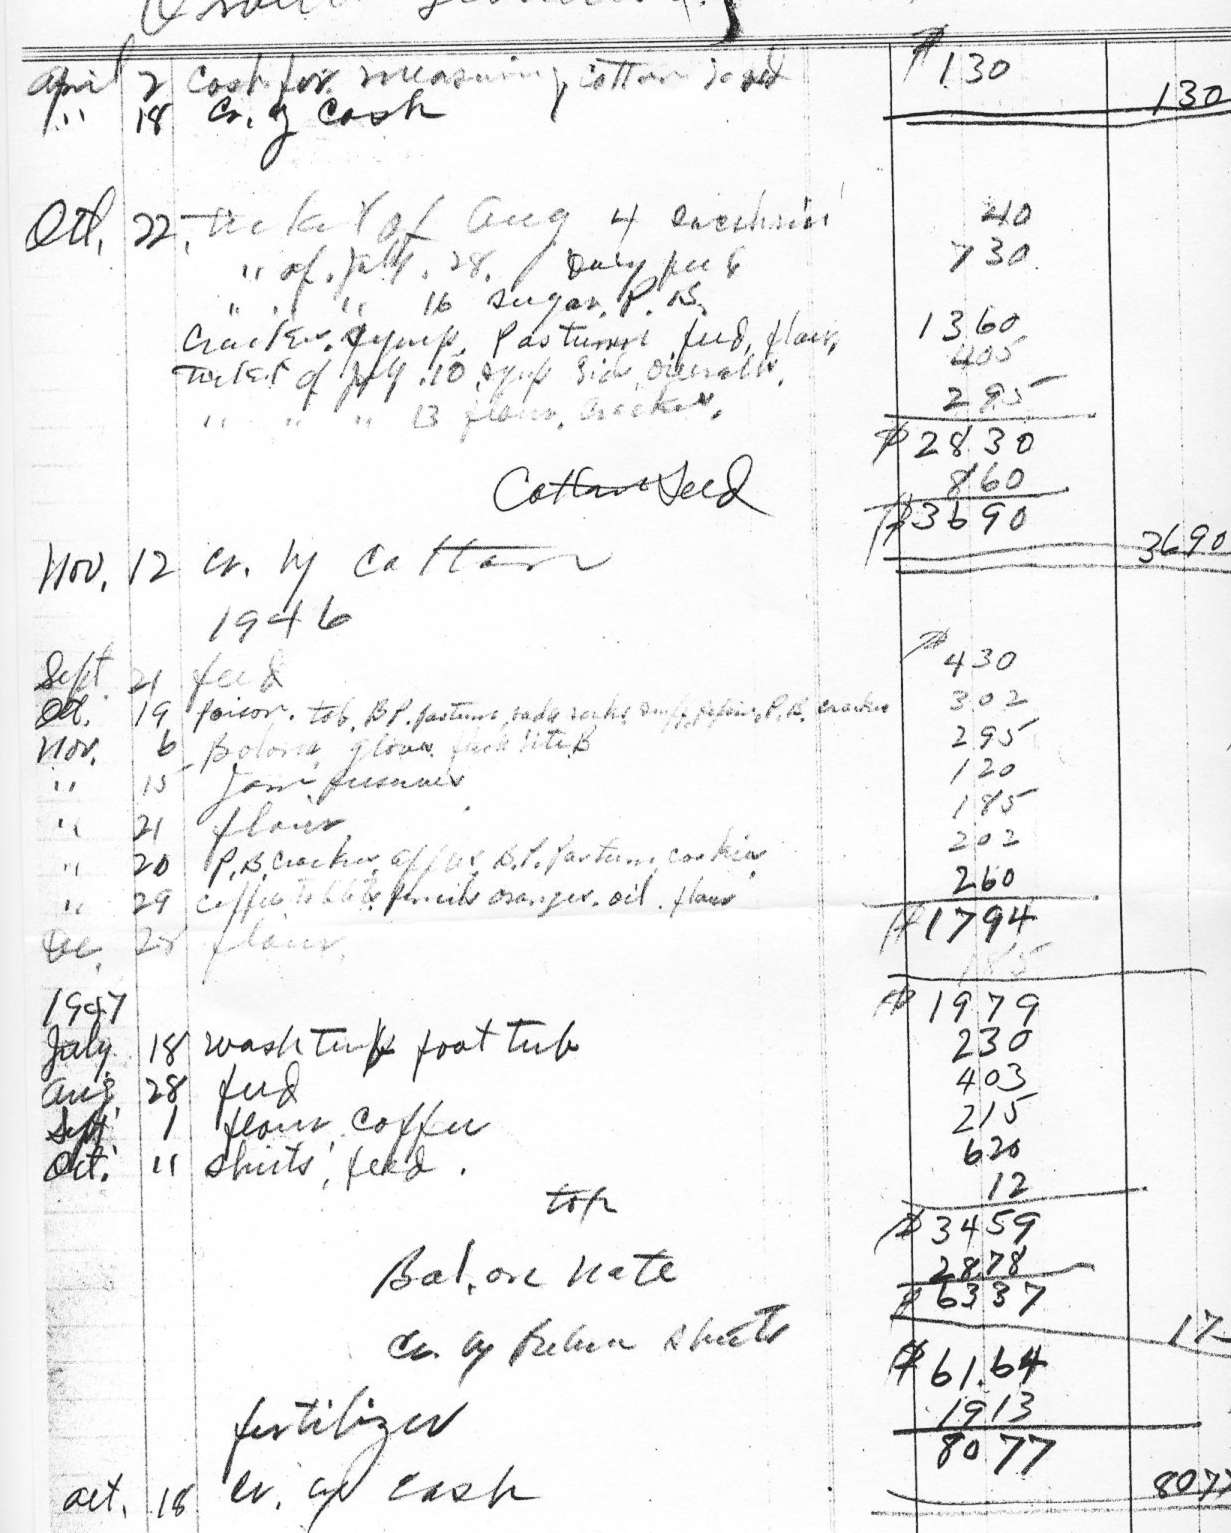 April 2 Cash for measuring cotton land $130
" 18 Cr. by Cash 130
Oct. 22, Ticket of Aug 4 40
" of July. 28. 730
" " " 16 sugar, P. B.
Cracker, Syrup, Pasturm feed, flour, 1360
Ticket of July. 10, syrup overalls, 405
" " " 13 flour, cracker, 295
$2830
Cotton Seed 860
$3690
Nov, 12 Cr. by Cotton 3690
1946
Sept. 21 feed $430
Oct. 19 tob, B P. pasturm, P, B, cracker 302
Nov. 6 Bolona, gloves 295
" 15 120
" 21 flour, 185
" 20 P, B, Cracker, B. P. Pasturm, cookies 202
" 29 coffee tablets pencils oranges. oil. flour 260
$1794
Dec, 28 flour, 185
1947 $1979
July 18 wash tub foot tub 230
Aug. 28 feed 403
Sept 1 flour, coffee 215
Oct. 11 Shirts, feed. 620
tob 12
$3459
Bal, on note 2878
$6337
Cr. by Return Shirts 17
$61.64
fertilizer 1913
8077
Oct. 18 Cr. by Cash 8077